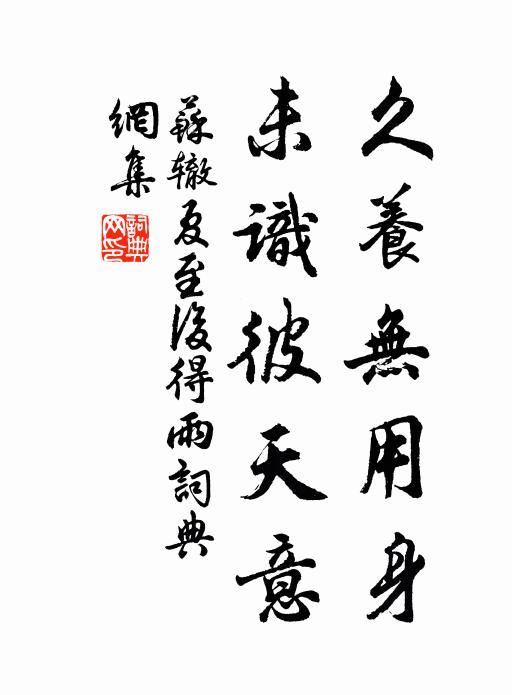 久養無用身
未識彼天意
蘇辙夏至後得雨詞典
網集
詞典
网印